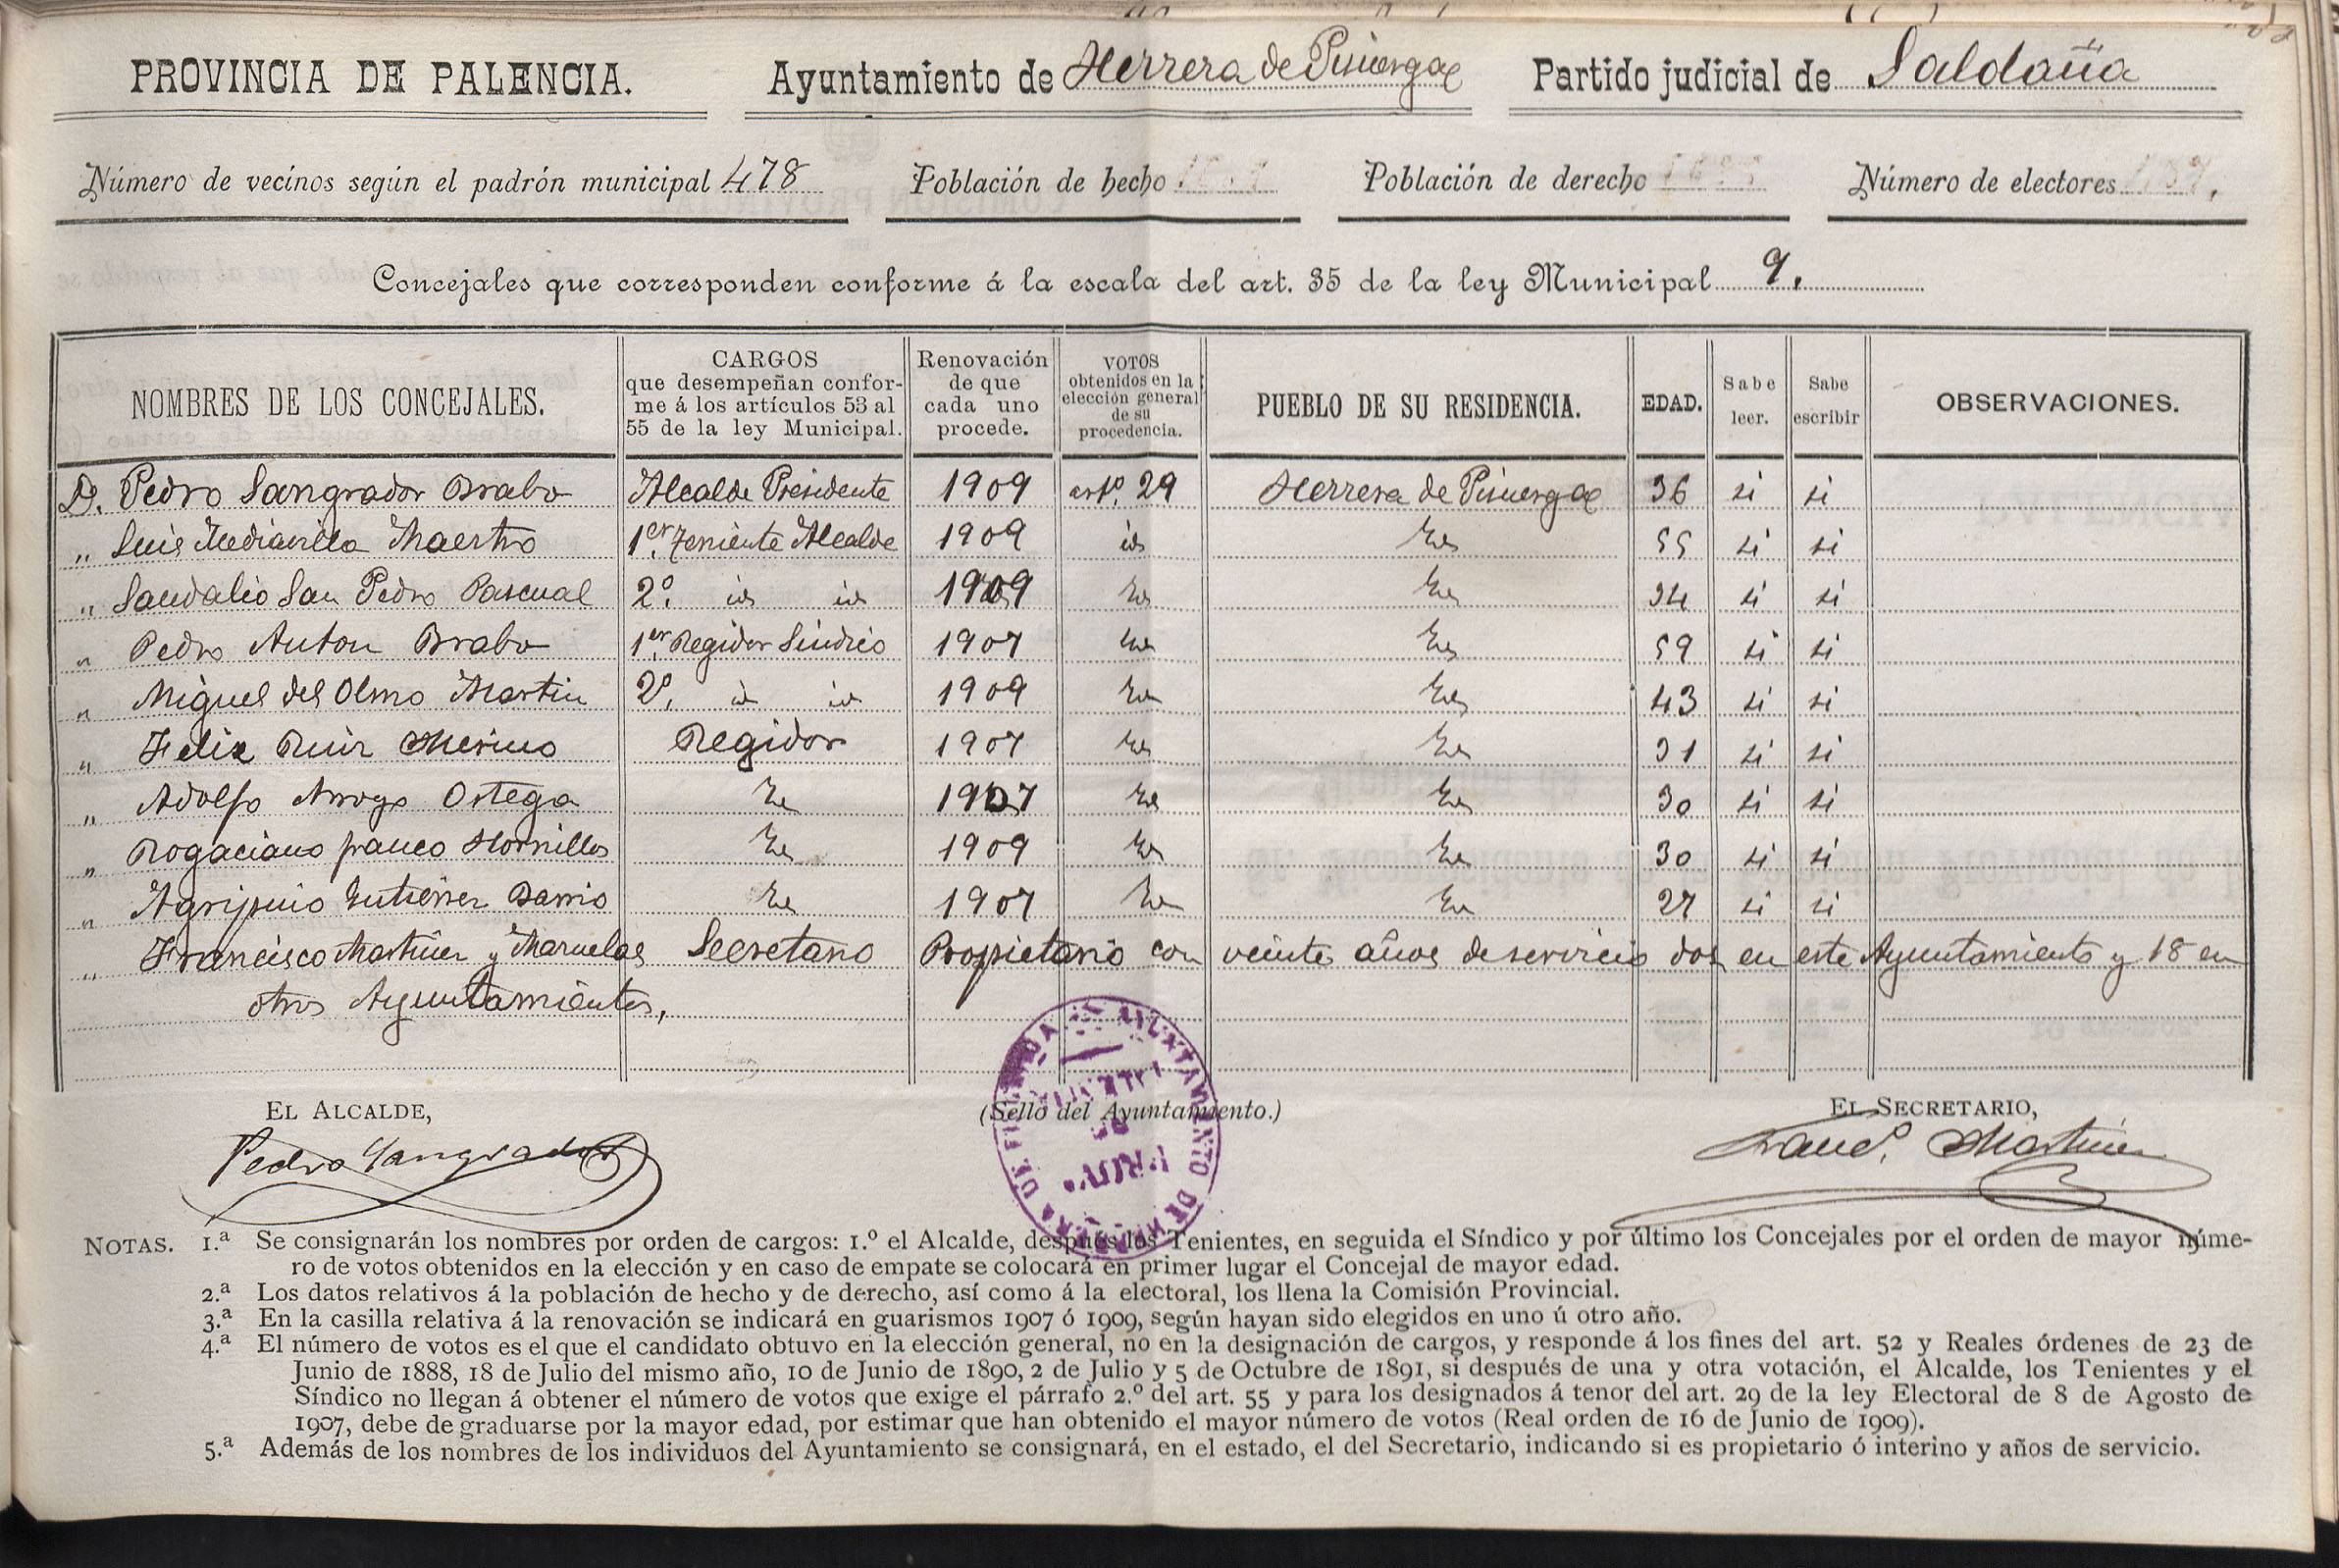 PROVINCIA DE PALENCIA. Ayuntamiento de Herrera de Pisuerga Partido judicial de Saldaña
Número de vecinos según el padrón municipal 478 Población de hecho Población de derecho Número de electores
Concejales que corresponden conforme á la escala del art. 35 de la ley Municipal 9.
NOMBRES DE LOS CONCEJALES. CARGOS que desempeñan confor- me á los artículos 53 al 55 de la ley Municipal. Renovación de que cada uno procede. VOTOS obtenidos en la elección general de su procedencia. PUEBLO DE SU RESIDENCIA. EDAD. Sabe leer. Sabe escribir OBSERVACIONES.
D. Pedro Sangrador Brabo Alcalde Presidente 1909 artº. 29 Herrera de Pisuerga 36 si si
„ Luis Mediavilla Maestro 1er. Teniente Alcalde 1909 id Id 55 si si
„ Sandalio San Pedro Pascual 2º. id id 1909 Id Id 34 si si
„ Pedro Anton Brabo 1er. Regidor Sindico 1907 Id Id 59 si si
„ Miguel del Olmo Martin 2º. id id 1909 Id Id 43 si si
„ Felix Ruiz Merino Regidor 1907 Id Id 31 si si
„ Adolfo Arroyo Ortega Id 1907 Id Id 30 si si
„ Rogaciano franco Hornillos Id 1909 Id Id 30 si si
„ Agripino Gutierrez Barrio Id 1907 Id Id 27 si si
„ Francisco Martinez y Mazuelas Secretario Propietario con veinte años de servicio dos en este Ayuntamiento y 18 en
otros Ayuntamientos.
EL ALCALDE, (Sello del Ayuntamiento.) EL SECRETARIO,
Pedro Sangrador Francº. Martinez
NOTAS. 1.ª Se consignarán los nombres por orden de cargos: 1.º el Alcalde, después los Tenientes, en seguida el Síndico y por último los Concejales por el orden de mayor núme-
ro de votos obtenidos en la elección y en caso de empate se colocará en primer lugar el Concejal de mayor edad.
2.ª Los datos relativos á la población de hecho y de derecho, así como á la electoral, los llena la Comisión Provincial.
3.ª En la casilla relativa á la renovación se indicará en guarismos 1907 ó 1909, según hayan sido elegidos en uno ú otro año.
4.ª El número de votos es el que el candidato obtuvo en la elección general, no en la designación de cargos, y responde á los fines del art. 52 y Reales órdenes de 23 de
Junio de 1888, 18 de Julio del mismo año, 10 de Junio de 1890, 2 de Julio y 5 de Octubre de 1891, si después de una y otra votación, el Alcalde, los Tenientes y el
Síndico no llegan á obtener el número de votos que exige el párrafo 2.º del art. 55 y para los designados á tenor del art. 29 de la ley Electoral de 8 de Agosto de
1907, debe de graduarse por la mayor edad, por estimar que han obtenido el mayor número de votos (Real orden de 16 de Junio de 1909).
5.ª Además de los nombres de los individuos del Ayuntamiento se consignará, en el estado, el del Secretario, indicando si es propietario ó interino y años de servicio.